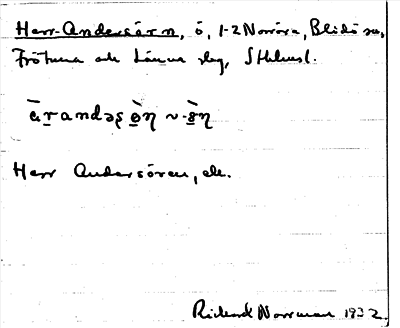 Herr-Andersörn, ö, 1-2 Norröra, Blidö sn,
Frötuna och Länna slg, Sthlmsl.
Herr Andersören, ek.
Rickard Norrman 1932.